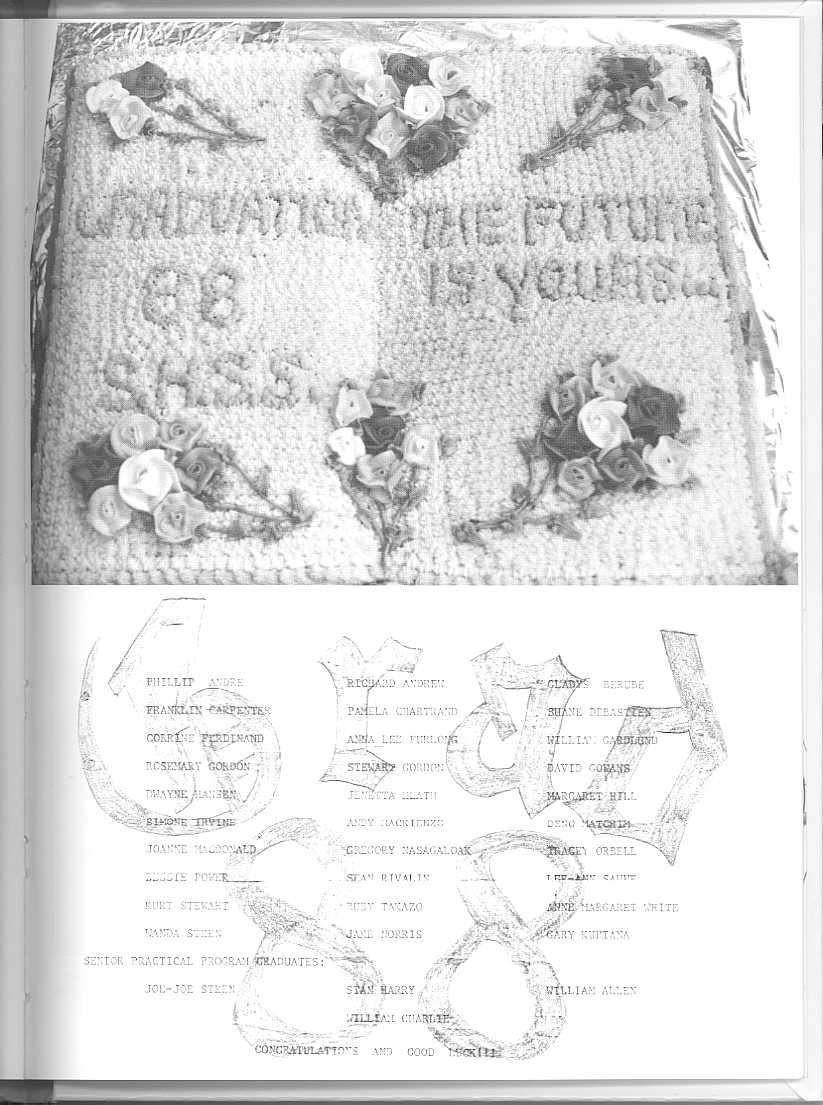 GRADUATION
88
S.H.S.S.
THE FUTURE
IS YOURS...
Grad
PHILLIP ANDRE RICHARD ANDREW GLADYS BERUBE
FRANKLIN CARPENTER PAMELA CHARTRAND SHANE DEBASTIEN
CORRINE FERDINAND ANNA LEE FURLONG WILLIAM GARDLUND
ROSEMARY GORDON STEWART GORDON DAVID GOWANS
DWAYNE HANSEN JENETTA HEATH MARGARET HILL
SIMONE IRVINE ANDY MACKIENZO DENO MATCHIM
JOANNE MACDONALD GREGORY NASAGALOAK TRACEY ORBELL
POWER SEAN RIVALIN LEE-ANN SAUVE
KURT STEWART RUBY TAKAZO ANNE MARGARET WHITE
WANDA STEEN JANE NORRIS GARY KUPTANA
SENIOR PRACTICAL PROGRAM GRADUATES:
JOE-JOE STEEN STAN HARRY WILLIAM ALLEN
WILLIAM CHARLIE
88
CONGRATULATIONS AND GOOD LUCK!!!